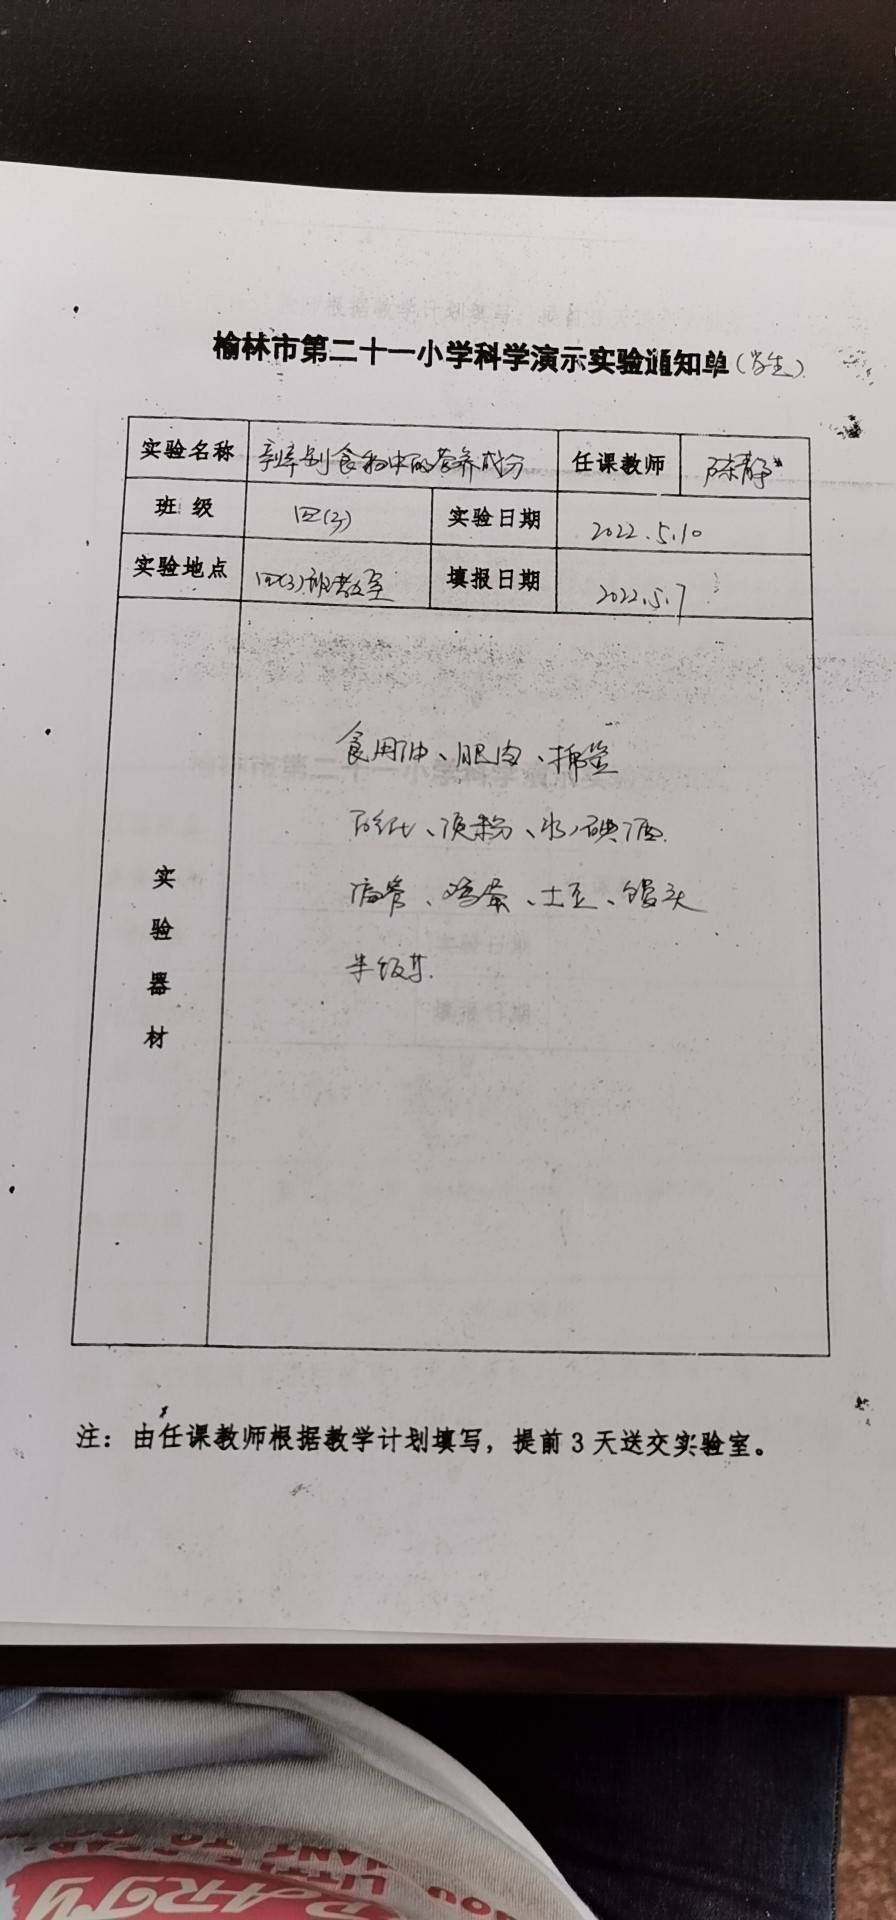 榆林市第二十一小学科学演示实验通知单(学生)
实验名称 辨别食物中的营养成分 任课教师 陈静
班级 四(3) 实验日期 2022.5.10
实验地点 四(3)班教室 填报日期 2022.5.7
实验器材
食用油、肥肉、棉签
白纸、淀粉、水、碘酒
滴管、鸡蛋、土豆、馒头
米饭等.
注：由任课教师根据教学计划填写，提前3天送交实验室。
PARTY